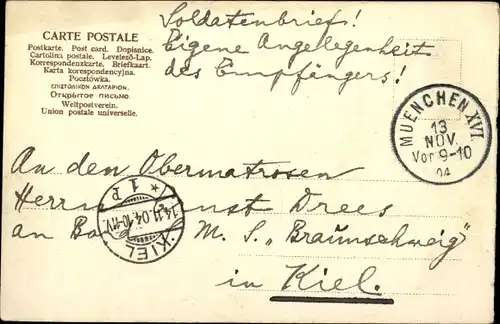 Soldatenbrief!
Eigene Angelegenheit
des Empfängers!
CARTE POSTALE
Postkarte. Post card. Dopisnice.
Cartolina postale. Levelező-Lap.
Korrespondenzkarte. Briefkaart.
Karta korespondencyjna.
Pocztówka.
ΕΠΙΣΤΟΛΙΚΟΝ ΔΕΛΤΑΡΙΟΝ.
Открытое письмо.
Weltpostverein.
Union postale universelle.
MUENCHEN XVI.
13
NOV.
Vor 9-10
04
An den Obermatrosen
Herrn Ernst Drees
an Bord S. M. S. „Braunschweig"
in Kiel.
KIEL
14.11.04.10-11V.
* 1 P